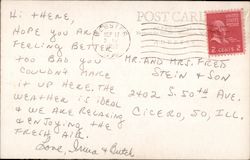 POST CARD
Hi THERE,
HOPE YOU ARE
FEELING BETTER.
TOO BAD YOU
COULDN'T MAKE
IT UP HERE. THE
WEATHER IS IDEAL
& WE ARE RELAXING
& ENJOYING THE
FRESH AIR.
Love, Irma & Butch
MR. AND MRS. FRED
STEIN & SON
2402 S. 50TH AVE.
CICERO, 50, ILL.
2 CENTS 2